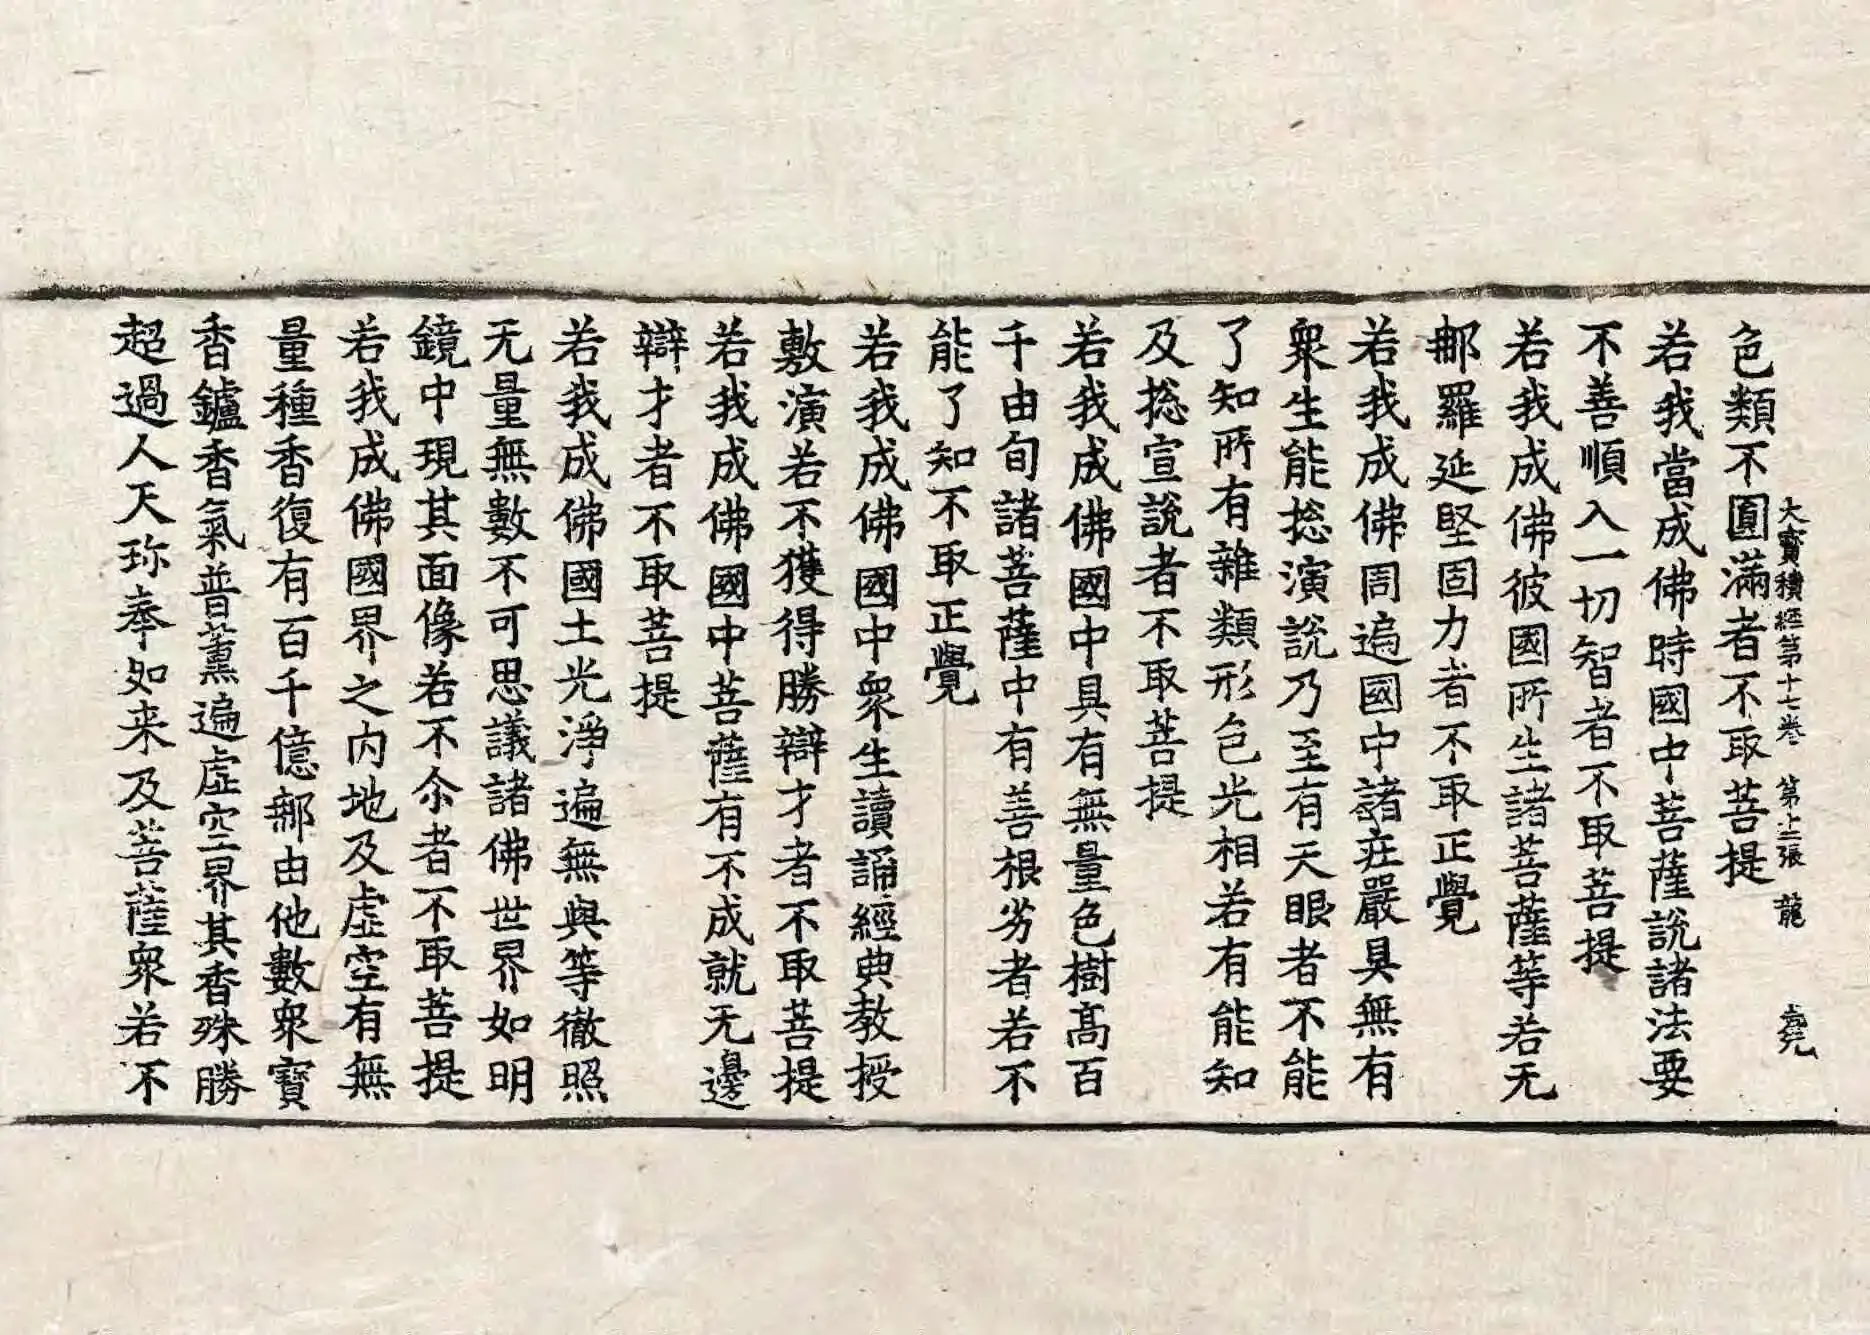 大寶積經第十七卷　第十三張　龍
色類不圓滿者不取菩提
若我當成佛時國中菩薩說諸法要
不善順入一切智者不取菩提
若我成佛彼國所生諸菩薩等若无
那羅延堅固力者不取正覺
若我成佛周遍國中諸莊嚴具無有
眾生能捴演說乃至有天眼者不能
了知所有雜類形色光相若有能知
及捴宣說者不取菩提
若我成佛國中具有無量色樹高百
千由旬諸菩薩中有善根劣者若不
能了知不取正覺
若我成佛國中眾生讀誦經典教授
敷演若不獲得勝辯才者不取菩提
若我成佛國中菩薩有不成就无邊
辯才者不取菩提
若我成佛國土光淨遍無與等徹照
无量無數不可思議諸佛世界如明
鏡中現其面像若不尒者不取菩提
若我成佛國界之內地及虛空有無
量種香復有百千億那由他數眾寶
香鑪香氣普薰遍虛空界其香殊勝
超過人天珎奉如来及菩薩眾若不